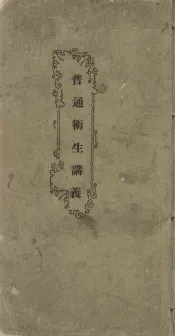 普通衛生講義